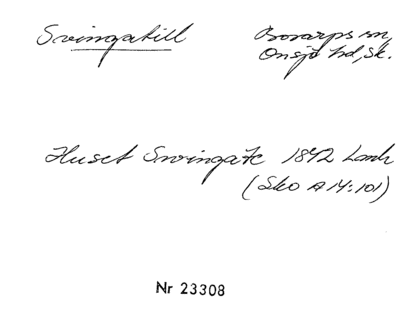 Svingatill Bosarps sn,
Onsjö hd, Sk.
Huset Svingate 1842 Lantm
(Sko A 14:101)
Nr 23308